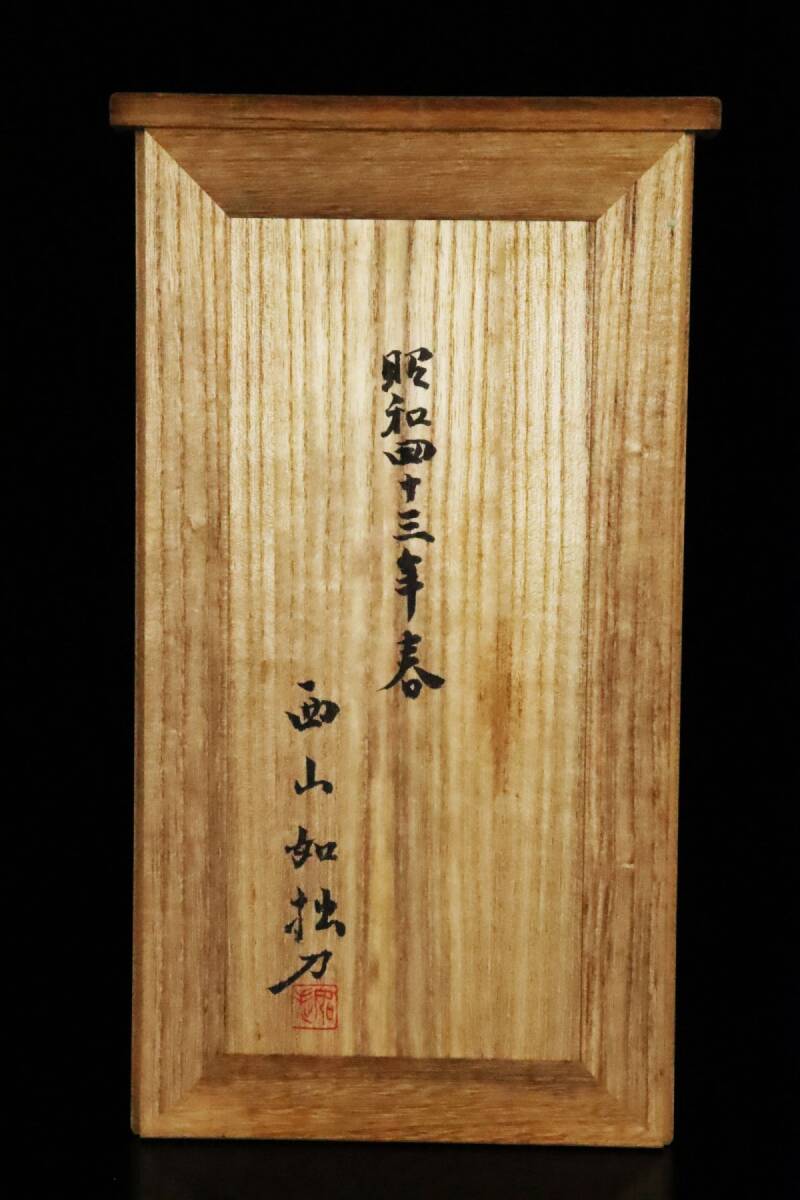 昭和四十三年春
西山如拙刀